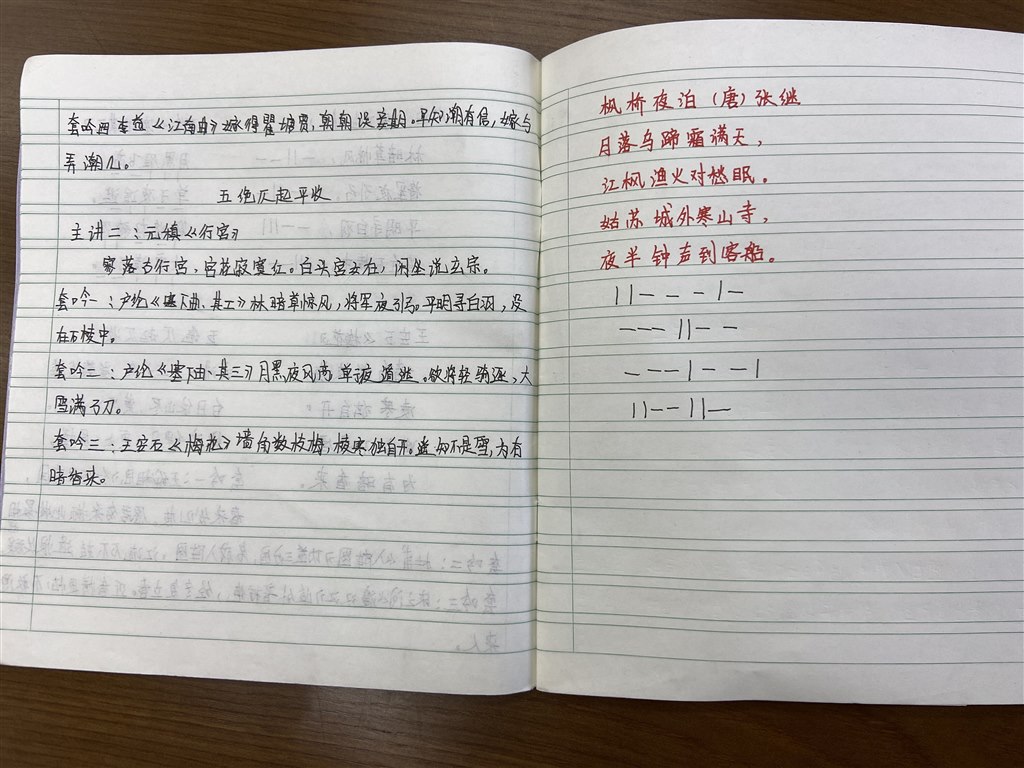 套吟四 李益《江南曲》嫁得瞿塘贾,朝朝误妾期。早知潮有信,嫁与
弄潮儿。
五绝仄起平收
主讲二:元稹《行宫》
寥落古行宫,宫花寂寞红。白头宫女在,闲坐说玄宗。
套吟一:卢纶《塞下曲·其二》林暗草惊风,将军夜引弓。平明寻白羽,没
在石棱中。
套吟二:卢纶《塞下曲·其三》月黑夜风高 单于夜遁逃。欲将轻骑逐,大
雪满弓刀。
套吟三:王安石《梅花》墙角数枝梅,凌寒独自开。遥知不是雪,为有
暗香来。
枫桥夜泊(唐)张继
月落乌蹄霜满天,
江枫渔火对愁眠。
姑苏城外寒山寺,
夜半钟声到客船。
||———|—
———||——
———|——|
||——||—